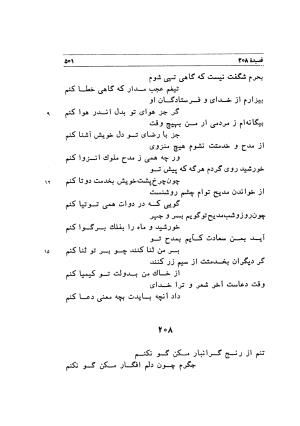 قصیدهٔ ۲۰۸
۵۰۱
بجرم شگفت نیست که گاهی تهی شوم
تیغم عجب مدار که گاهی خطا کنم
بیزارم از خدای و فرستادگان او
گر جز هوای تو بدل اندر هوا کنم
۹
بیگانه‌ام ز مردمی ار من بهیچ وقت
جز با رضای تو دل خویش آشنا کنم
از مدح و خدمتت نشوم هیچ منزوی
ور چه همی ز مدح ملوک انزوا کنم
خورشید روی گردم هرگه که پیش تو
چون‌چرخ‌پشت‌خویش بخدمت دوتا کنم
۱۲
از خواندن مدیح توام چشم روشنست
گویی که در دوات همی توتیا کنم
چون‌روزوشب‌مدیح‌توگویم بسر و جهر
خورشید و ماه را بفلک برگوا کنم
آید بمن سعادت کآیم بمدح تو
بر من ثنا کنند چو بر تو ثنا کنم
۱۵
گر دیگران بخدمتت از سیم زر کنند
از خاک من بدولت تو کیمیا کنم
وقت دعاست آخر شعر و ترا خدای
داد آنچه بایدت بچه معنی دعا کنم
۲۰۸
تنم از رنج گرانبار مکن گو نکنم
جگرم چون دلم افگار مکن گو نکنم